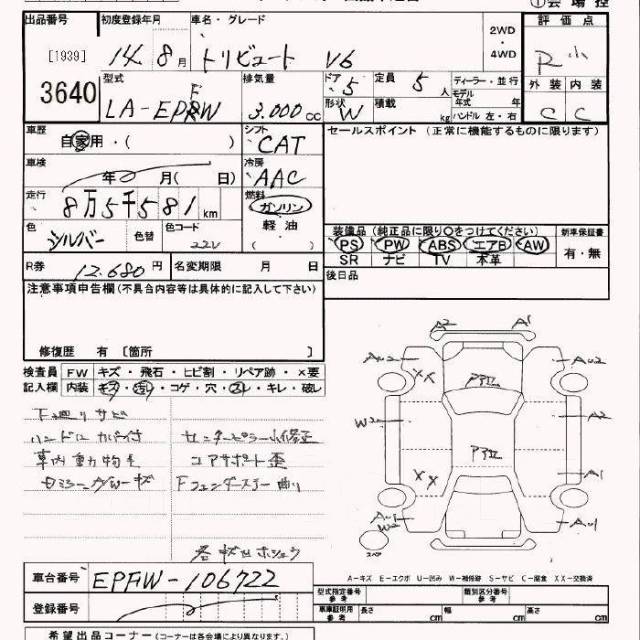 ①会場控
出品番号 初度登録年月 車名・グレード 2WD・4WD 評価点
[1939] 14.8月 トリビュート V6 R小
3640 型式 排気量 ドア 定員 ディーラー・並行 外装 内装
LA-EPFW 3.000cc 5 5人 モデル年式 年 C C
形状 W 積載 kg ハンドル 左・右
車歴 自家用・( ) シフト CAT セールスポイント (正常に機能するものに限ります)
車検 年 月( 日) 冷房 AAC
走行 8万5千581km 燃料 ガソリン 軽油 ( )
色 シルバー 色替 色コード 22V
装備品 (純正品に限り○をつけてください) 新車保証書
PS PW ABS エアB AW 有・無
SR ナビ TV 本革
R券 12.680円 名変期限 月 日 後日品
注意事項申告欄(不具合内容等は具体的に記入して下さい)
修復歴 有 〔箇所 〕
検査員 FW キズ・飛石・ヒビ割・リペア跡・×要
記入欄 内装 キズ・汚れ・コゲ・穴・スレ・キレ・破レ
下廻りサビ
ハンドルカバー付 センターピラー小修正
車内動物毛 コアサポート歪
Fフェンダーステー曲り
各キズホシュウ
A2 A1
AU2 XX アアII AU2
W2 アアII A2
XX A1
AU1 W2 AU1
スペア
A-キズ E-エクボ U-凹み W-補修跡 S-サビ C-腐食 XX-交換済
車台番号 EPFW-106722 型式指定番号 参考 類別区分番号 参考
登録番号 車庫証明用 参考 長さ cm 幅 cm 高さ cm
希望出品コーナー(コーナーは各会場により異なります。)